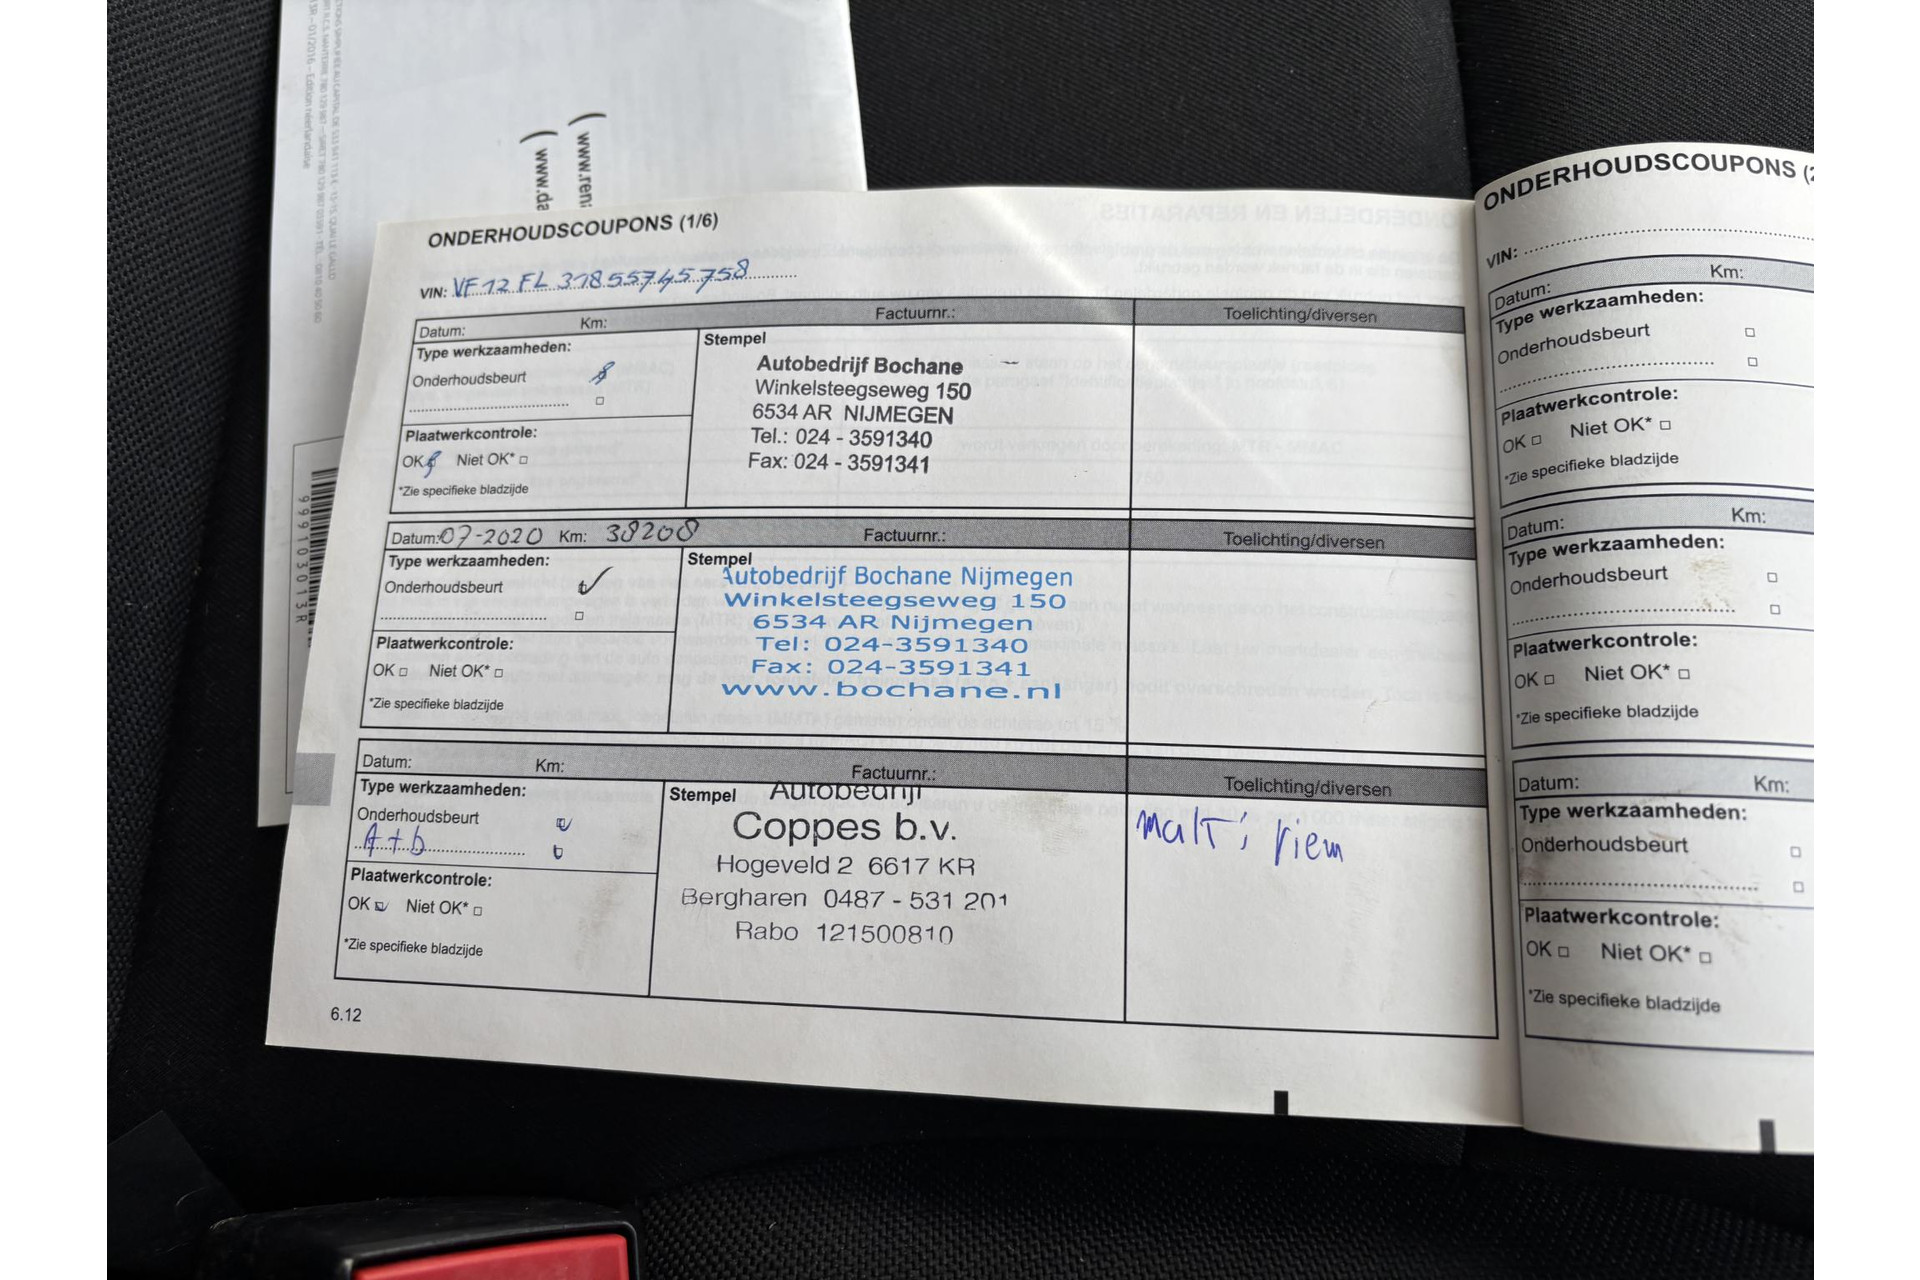 (www.rena
(www.da
999103013R
ONDERHOUDSCOUPONS (1/6)
VIN: VF12FL31855745758
Datum: Km: Factuurnr.: Toelichting/diversen
Type werkzaamheden:
Onderhoudsbeurt
Plaatwerkcontrole:
OK Niet OK*
*Zie specifieke bladzijde
Stempel
Autobedrijf Bochane
Winkelsteegseweg 150
6534 AR NIJMEGEN
Tel.: 024 - 3591340
Fax: 024 - 3591341
Datum: 07-2020 Km: 38208 Factuurnr.: Toelichting/diversen
Type werkzaamheden:
Onderhoudsbeurt
Plaatwerkcontrole:
OK Niet OK*
*Zie specifieke bladzijde
Stempel
Autobedrijf Bochane Nijmegen
Winkelsteegseweg 150
6534 AR Nijmegen
Tel: 024-3591340
Fax: 024-3591341
www.bochane.nl
Datum: Km: Factuurnr.: Toelichting/diversen
Type werkzaamheden:
Onderhoudsbeurt
A+b
Plaatwerkcontrole:
OK Niet OK*
*Zie specifieke bladzijde
Stempel
Autobedrijf
Coppes b.v.
Hogeveld 2 6617 KR
Bergharen 0487 - 531 201
Rabo 121500810
multi riem
6.12
ONDERHOUDSCOUPONS (2
VIN:
Datum: Km:
Type werkzaamheden:
Onderhoudsbeurt
Plaatwerkcontrole:
OK Niet OK*
*Zie specifieke bladzijde
Datum: Km:
Type werkzaamheden:
Onderhoudsbeurt
Plaatwerkcontrole:
OK Niet OK*
*Zie specifieke bladzijde
Datum: Km:
Type werkzaamheden:
Onderhoudsbeurt
Plaatwerkcontrole:
OK Niet OK*
*Zie specifieke bladzijde